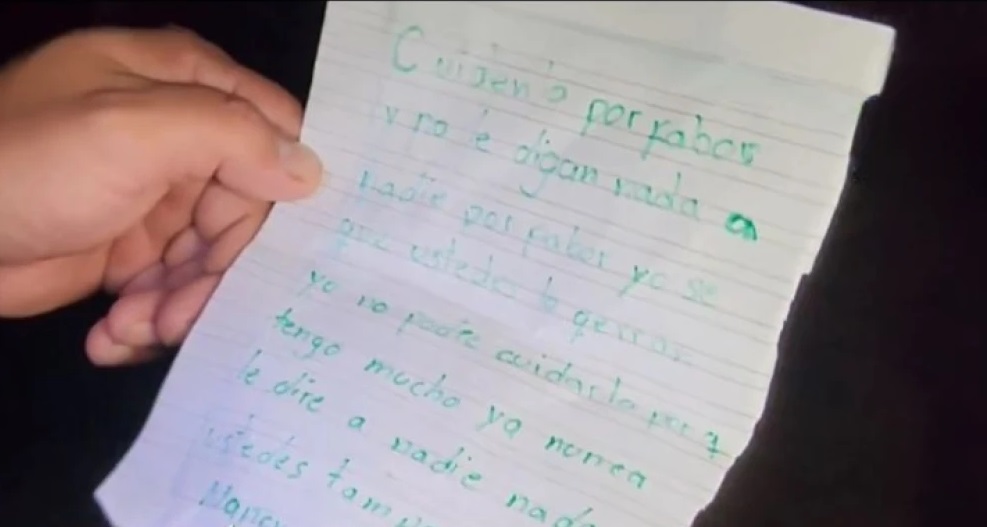 Cuidenlo por fabor
y no le digan nada a
nadie por fabor yo se
que ustedes lo
yo no podre cuidarlo por q
tengo mucho ya nonca
le dire a nadie nada
ustedes
Nancy